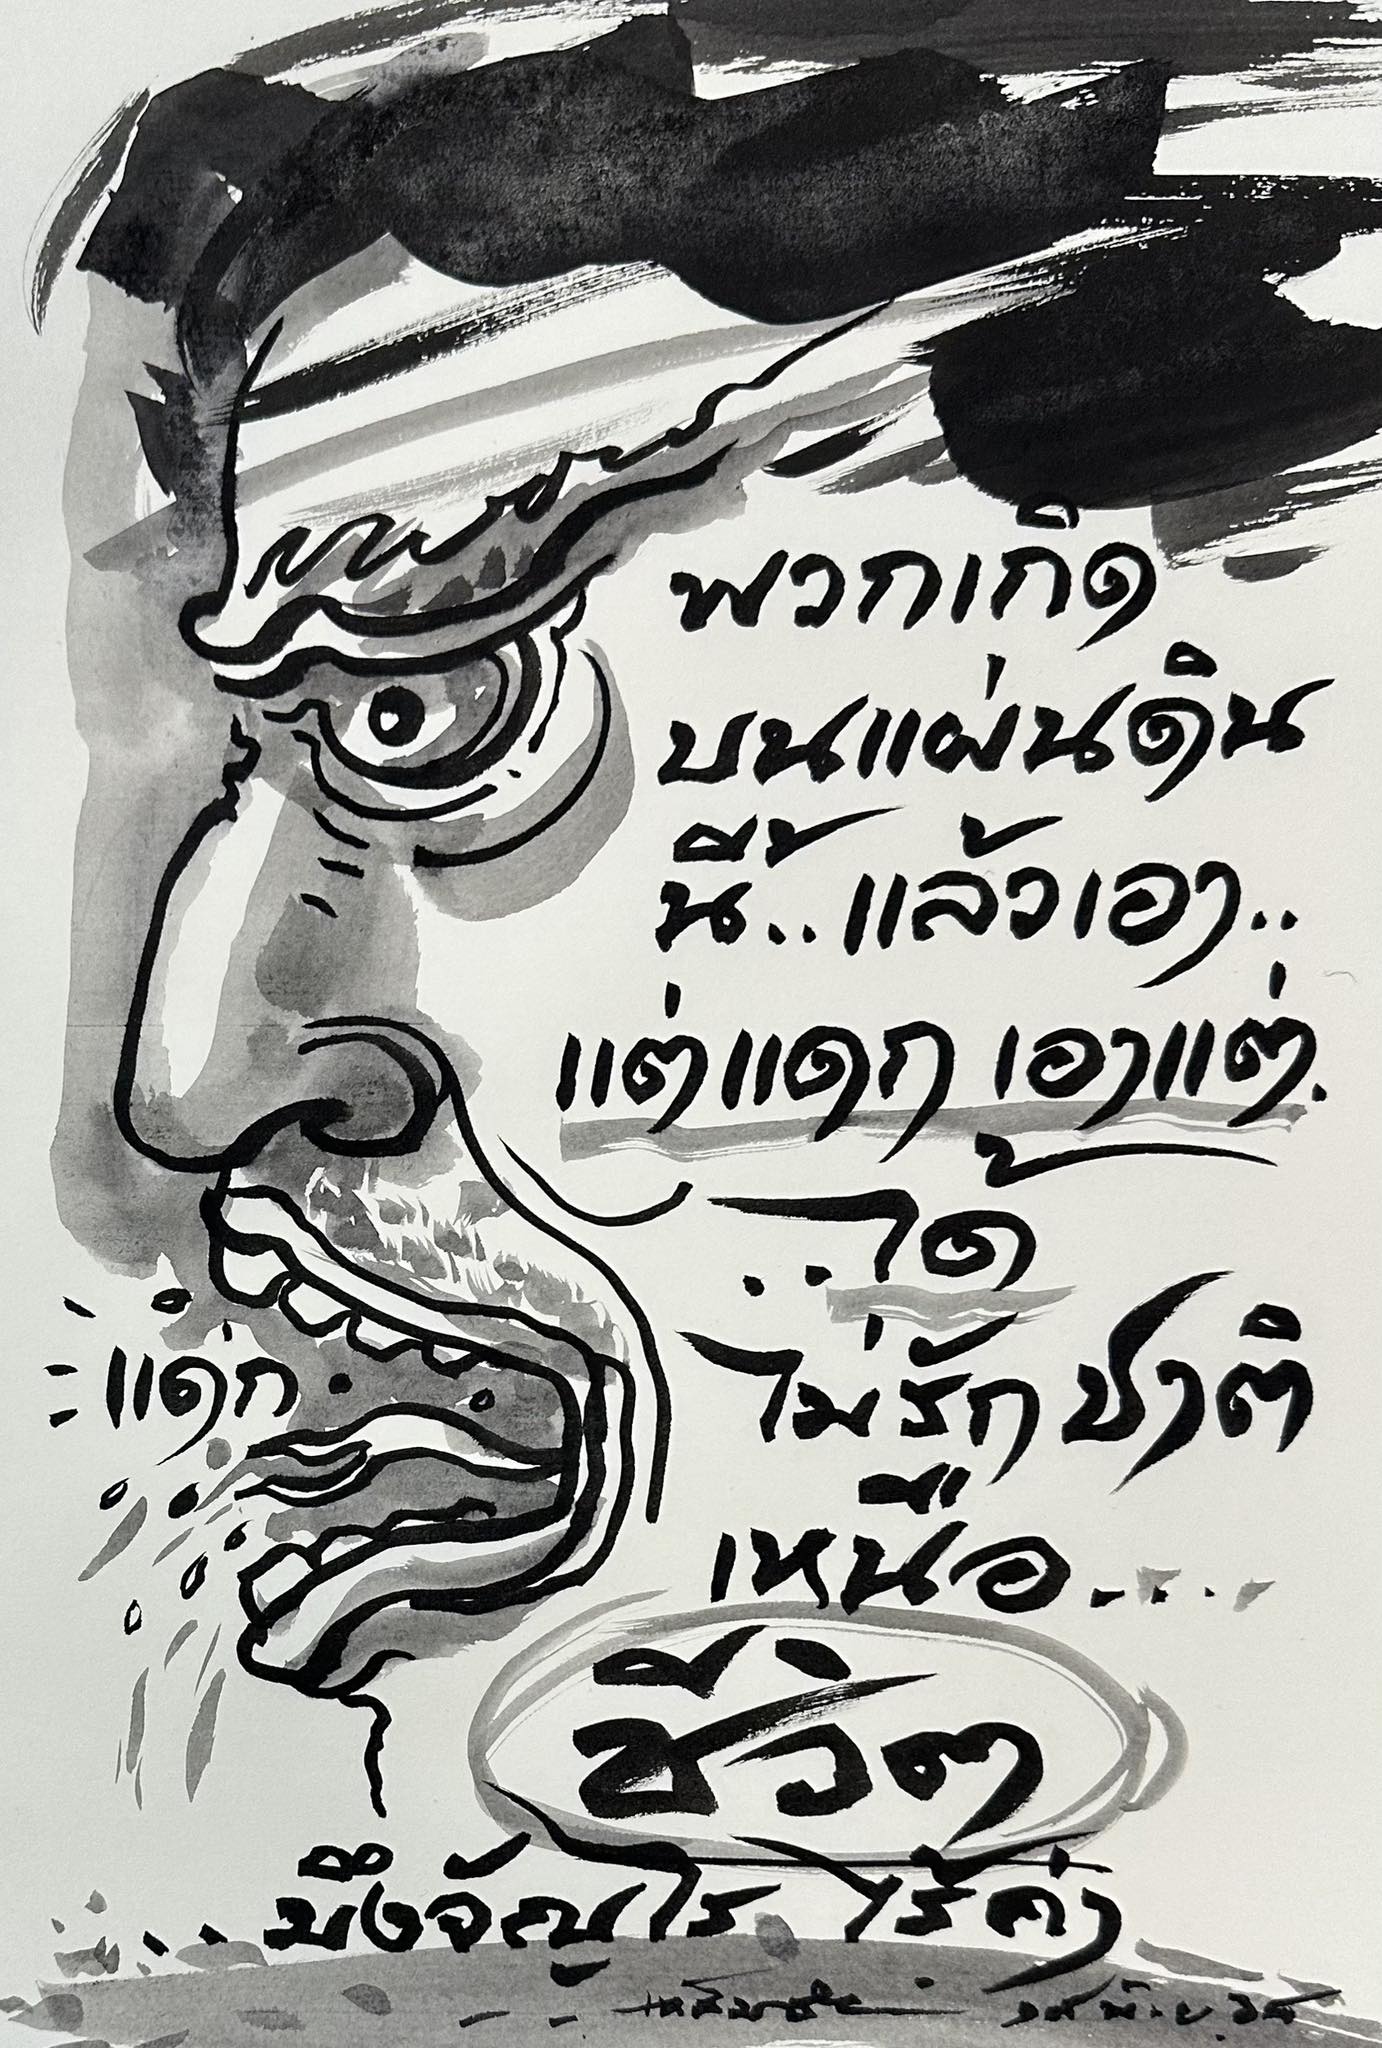 พวกเกิด
บนแผ่นดิน
นี้..แล้วเอา..
แต่แดก เอาแต่.
..ได้
ไม่รักชาติ
แด่ก
เหนือ....
ชีวิต
...มึงจัญไร ไร้ค่า